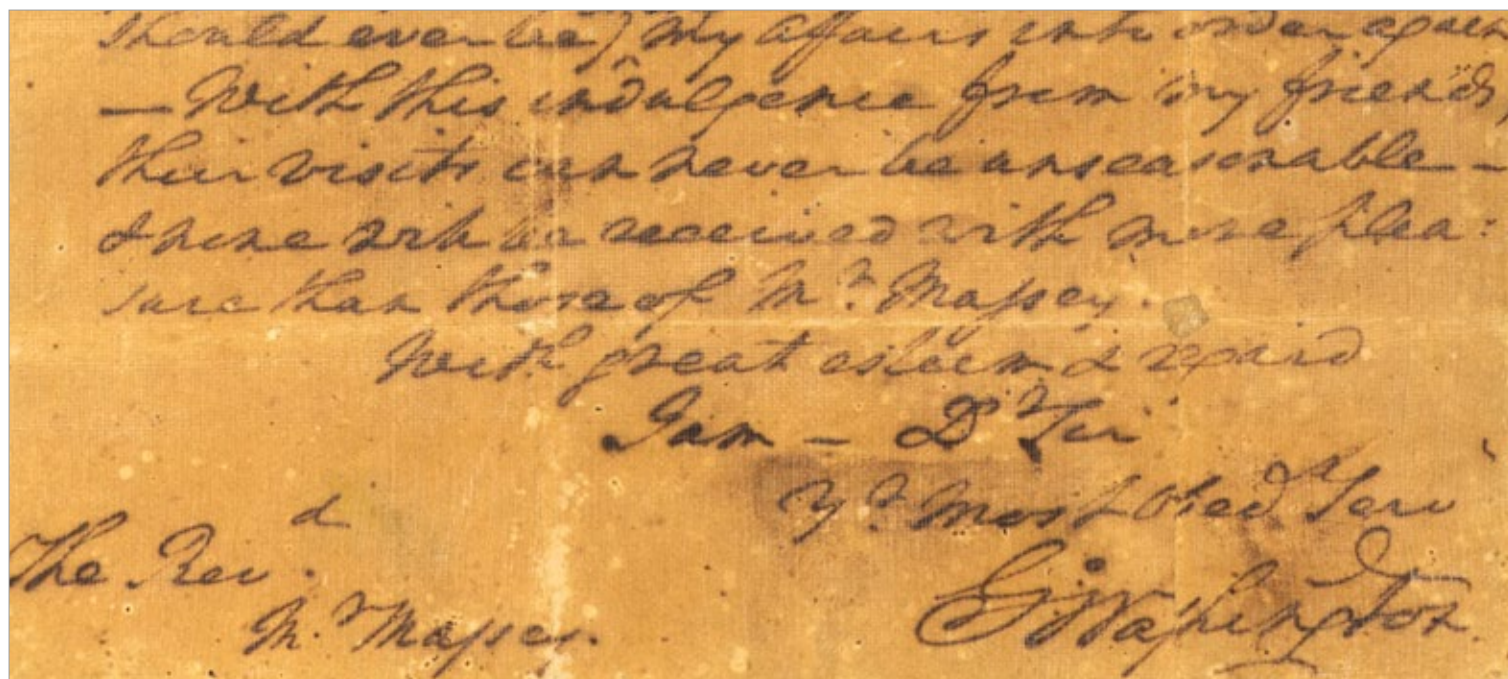 should ever be) my affairs into order again
— With this indulgence from my friends,
their visits can never be unseasonable —
& none will be received with more plea:
sure than those of Mr. Massey.
With great esteem & regard
I am — Dr Sir
Yr. Most Obed Serv
The Revd.
Mr Massey.
G:Washington.